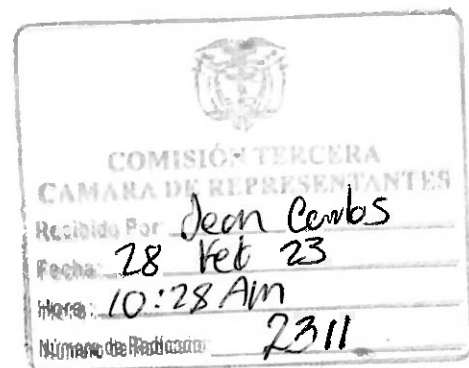 COMISIÓN TERCERA
CAMARA DE REPRESENTANTES
Recibido Por: Jean Carlos
Fecha: 28 Feb 23
Hora: 10:28 AM
Número de Radicación: 2311